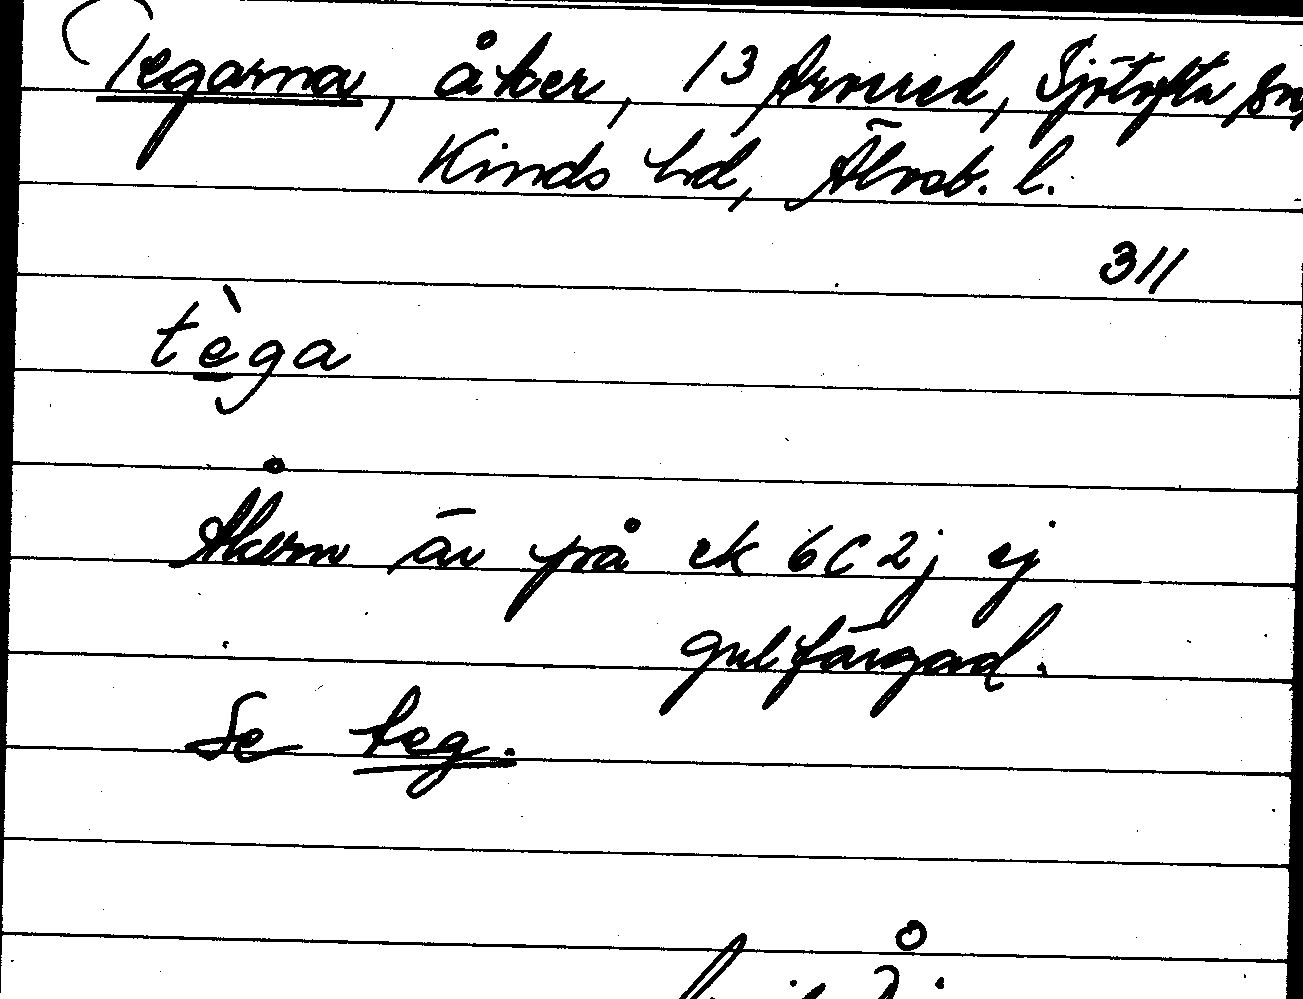 Tegarna, åker, 13 Arnred, Sjötofta sn,
Kinds hd, Älvsb. l.
311
tèga
Åkern är på ek 6C2j ej
gulfärgad.
Se teg.